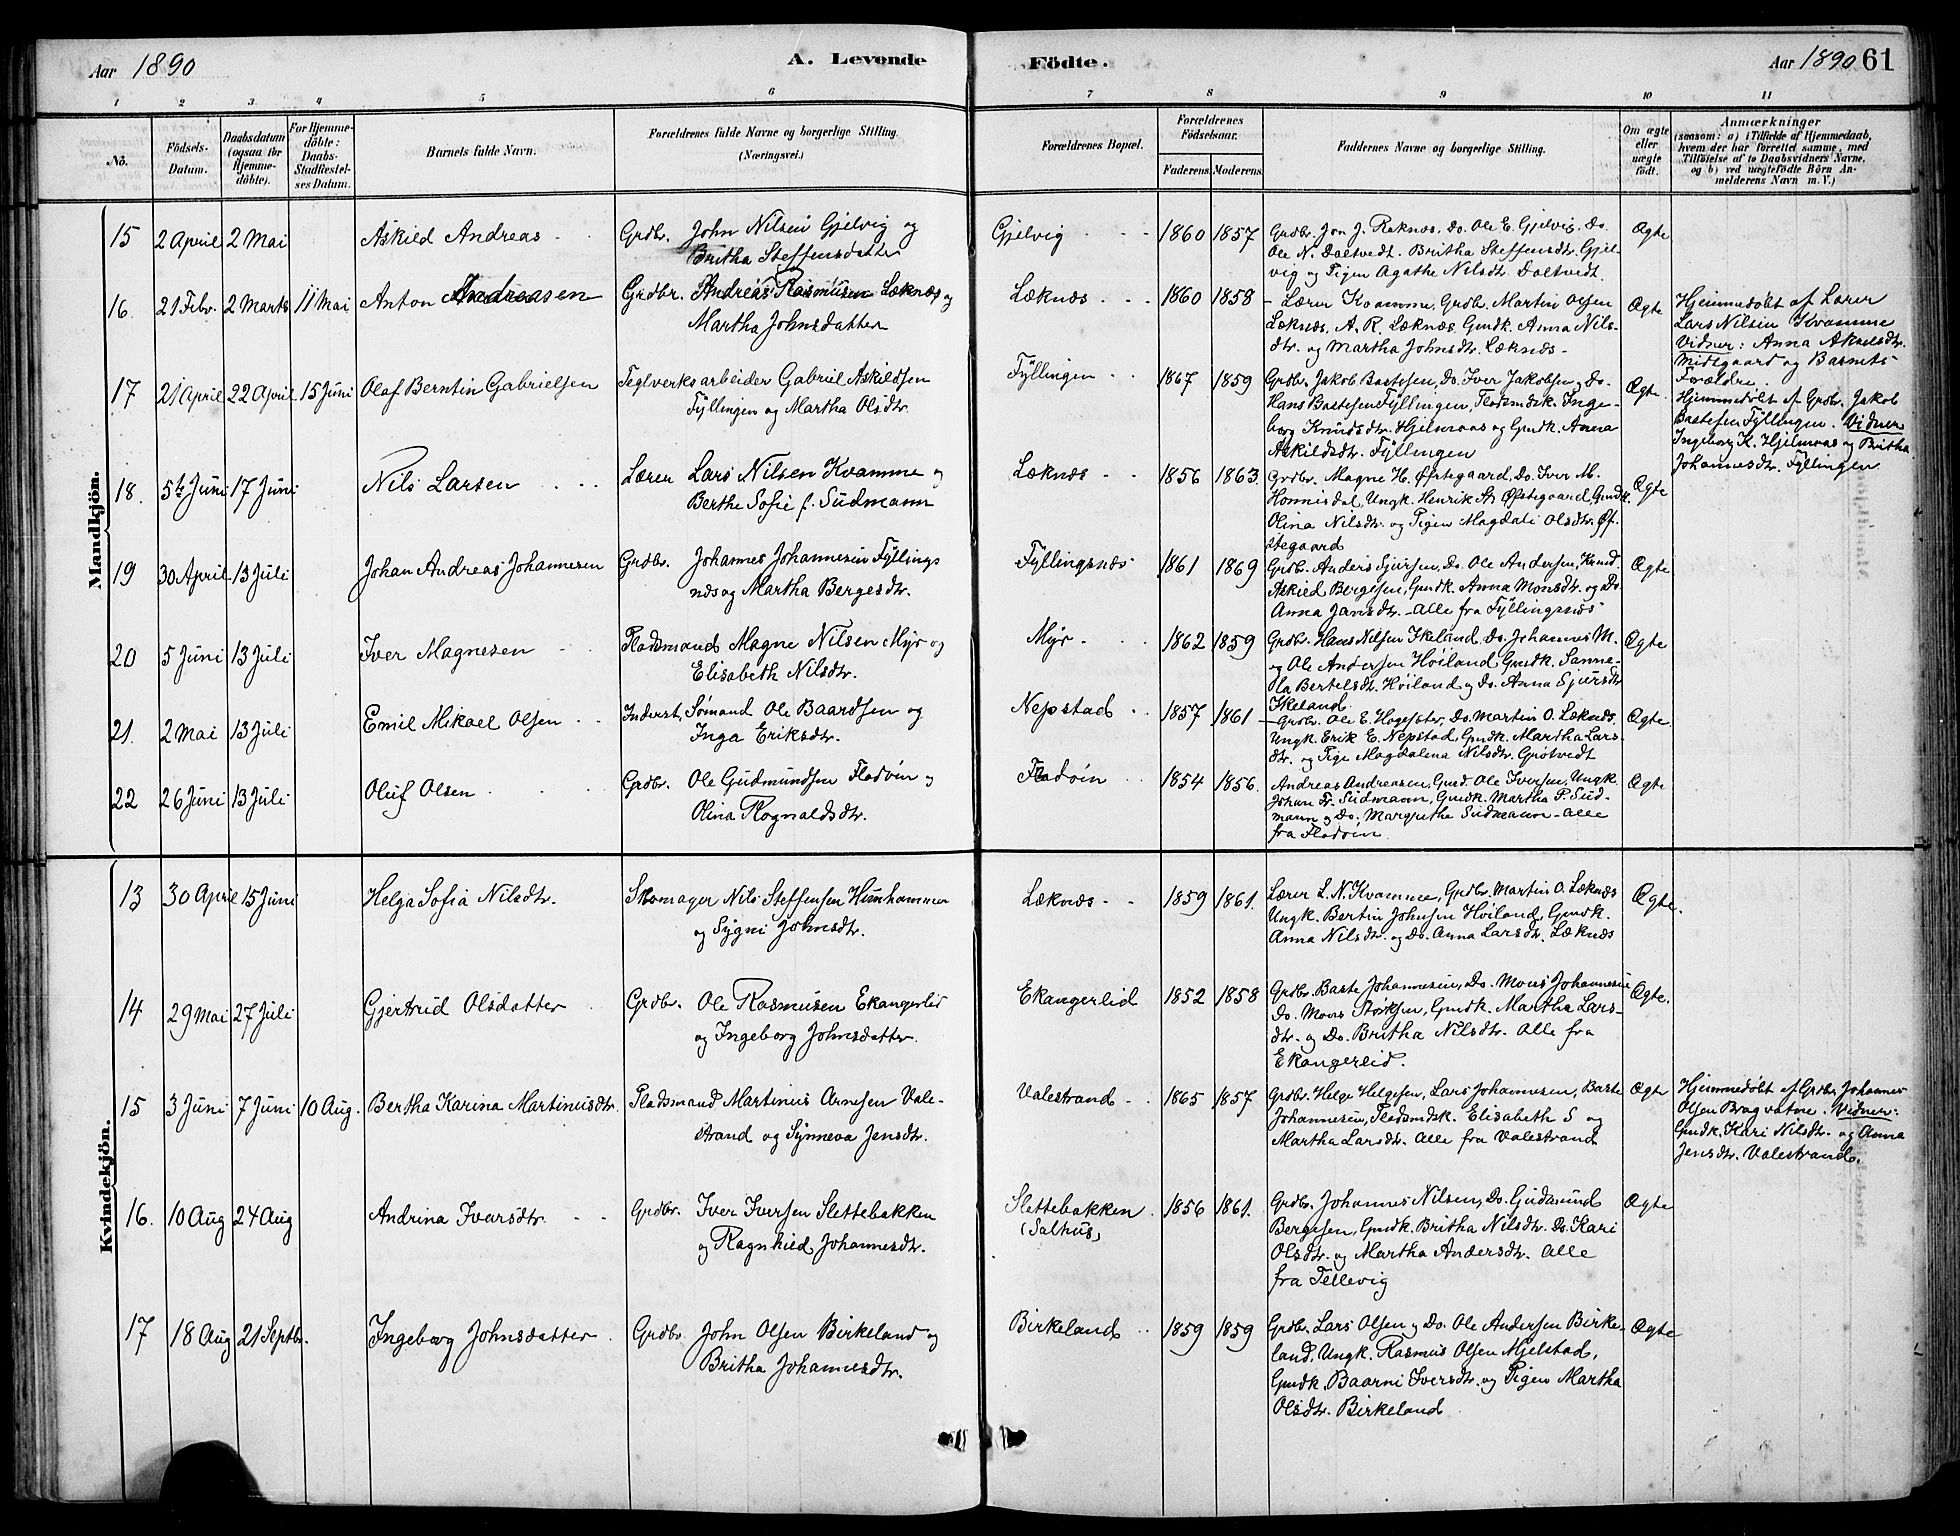 Aar 1890
A. Levende Födte.
Aar 1890
61
1 2 3 4 5 6 7 8 9 10 11
No.
Födsels-
Datum.
Daabsdatum
(ogsaa for
hjemme-
döbte).
For Hjemme-
döbte:
Daabs-
Stadfæstel-
ses Datum.
Barnets fulde Navn.
Forældrenes fulde Navne og borgerlige Stilling.
(Næringsvei.)
Forældrenes Bopæl.
Forældrenes
Födselsaar.
Faderens. Moderens.
Faddernes Navne og borgerlige Stilling.
Om ægte
eller
uægte
födt.
Anmærkninger
(saasom: a) i Tilfælde af Hjemmedaab,
hvem der har forrettet samme, med
Tilföielse af to Daabsvidners Navne,
og b) ved uægtefödte Börn An-
melderens Navn m. V.)
Mandkjön.
15 2 April 2 Mai Askild Andreas
Grdbr. John Nilsen Gjelvig og
Britha Steffensdatter
Gjelvig 1860 1857
Grdbr. Jon J. Raknes, Do. Ole E. Gjelvig, Do.
Ole N. Daltvedt. Britha Steffensdtr. Gjel-
vig og Pigen Agathe Nilsdt. Daltvedt.
Ægte
16. 21 Febr. 2 Marts 11 Mai Anton Andreasen
Grdbr. Andreas Rasmusen Læknes og
Martha Johnsdatter
Læknes 1860 1858
- Lærer Kvamme, Grdbr. Martin Olsen
Læknes, A. R. Læknes, Gmdk. Anna Nils-
dtr. og Martha Johnsdtr. Læknes-
Ægte
Hjemmedöbt af Lærer
Lars Nilsen Kvamme
Vidner: Anna Akselsdtr.
Midtgaard og Barnets
Forældre.
17 21 April 22 April 15 Juni Olaf Berntin Gabrielsen
Teglverksarbeider Gabriel Askildsen
Fyllingen og Martha Olsdtr.
Fyllingen 1867 1859
Grdbr. Jakob Bastesen, Do. Iver Jakobsen og Do.
Hans Bastesen Fyllingen, Pladsmdsk. Inge-
borg Knudsdtr. Hjelmaas og Gmdk. Anna
Askildsdtr. Fyllingen
Ægte.
Hjemmedöbt af Grdbr. Jakob
Bastesen Fyllingen. Vidner
Ingeborg K. Hjelmaas og Britha
Johannesdtr. Fyllingen
18. 5te Juni 17 Juni Nils Larsen
Lærer Lars Nilsen Kvamme og
Berthe Sofie f. Sudmann
Læknes 1856 1863.
Grdbr. Magne H. Østegaard, Do. Iver M.
Honnisdal, Ungk. Henrik St. Østegaard, Gmdk.
Olina Nilsdtr. og Pigen Magdali Olsdtr. Øs-
stegaard
Ægte
19 30 April 13 Juli Johan Andreas Johannesen
Grdbr. Johannes Johannesen Fyllings
næs og Martha Bergesdtr.
Fyllingsnæs 1861 1869
Grdbr. Anders Sjursen, Do. Ole Andersen, Knud
Askild Bergesen, Gmdk. Anna Monsdtr. og Do.
Anna Jansdtr. - Alle fra Fyllingsnæs
Ægte
20 5 Juni 13 Juli Iver Magnesen
Pladsmand Magne Nilsen Myr og
Elisabeth Nilsdtr.
Myr 1862 1859
Grdbr. Hans Nilsen Ikeland, Do. Johannes M.
og Ole Andersen Höiland, Gmdk. Sanne-
Ola Bertelsdtr. Höiland og Do. Anna Sjursdtr
Ikeland
Ægte
21. 2 Mai 13 Juli Emil Mikael Olsen
Inderst, Sømand Ole Baardsen og
Inga Eriksdtr.
Nepstad 1857 1861
- Grdbr. Ole E. Hagester, Do. Martin O. Læknes.
Ungk. Erik E. Nepstad, Gmdk. Martha Lars-
dtr. og Pige Magdalena Nilsdtr. Grøtvedt
Ægte
22 26 Juni 13 Juli Oluf Olsen
Grdbr. Ole Gudmundsen Fladöin og
Olina Rognaldsdtr.
Fladöin 1854 1856.
Andreas Andreasen, Gmd. Ole Iversen, Ungk
Johan Fr. Sudmann, Gmdk. Martha P. Sud-
mann og Do. Margrethe Sudmann - Alle
fra Fladöin
Ægte
Kvindekjön.
13 30 April 15 Juni Helga Sofia Nilsdtr.
Skomager Nils Steffensen Hunhammer
og Sygni Johnsdtr.
Læknes 1859 1861.
Lærer L. N. Kvamme, Grdbr. Martin O. Læknes
Ungk. Bertin Johnsen Höiland, Gmdk.
Anna Nilsdtr. og Do. Anna Larsdtr. Læknes
Ægte.
14 29 Mai 27 Juli Gjertrud Olsdatter
Grdbr. Ole Rasmusen Ekangerlid
og Ingeborg Johnsdatter.
Ekangerlid 1852 1858
Grdbr. Baste Johannesen, Do. Mons Johannesen
Do. Mons Størksen, Gmdk. Martha Lars-
dtr. og Do. Britha Nilsdtr. Alle fra
Ekangerlid.
Ægte.
15 3 Juni 7 Juni 10 Aug. Bertha Karina Martinusdtr.
Pladsmand Martinus Arnesen Vale-
strand og Synneva Jensdtr.
Valestrand 1865 1857
Grdbr. Helge Helgesen, Lars Johannesen, Baste
Johannesen, Pladsmdsk. Elisabeth S og
Martha Larsdtr. Alle fra Valestrand
Ægte
Hjemmedöbt af Grdbr Johannes
Olsen Bragvatne. Vidner:
Gmdk. Kari Nilsdtr. og Anna
Jensdtr. Valestrand.
16. 10 Aug 24 Aug Andrina Iversdtr.
Grdbr. Iver Iversen Slettebakken
og Ragnhild Johannesdtr.
Slettebakken
(Salhus)
1856 1861.
Grdbr. Johannes Nilsen, Do. Gudmund
Bergesen, Gmdk. Britha Nilsdtr. Do. Kari
Olsdtr. og Martha Andersdtr. Alle
fra Tellevig
Ægte
17 18 Aug 21 Septbr. Ingeborg Johnsdatter
Grdbr. John Olsen Birkeland og
Britha Johannesdtr.
Birkeland 1859 1859
Grdbr. Lars Olsen og Do. Ole Andersen Birke-
land, Ungk. Rasmus Olsen Mjelstad,
Gmdk. Baarni Iversdtr. og Pigen Martha
Olsdtr. Birkeland
Ægte